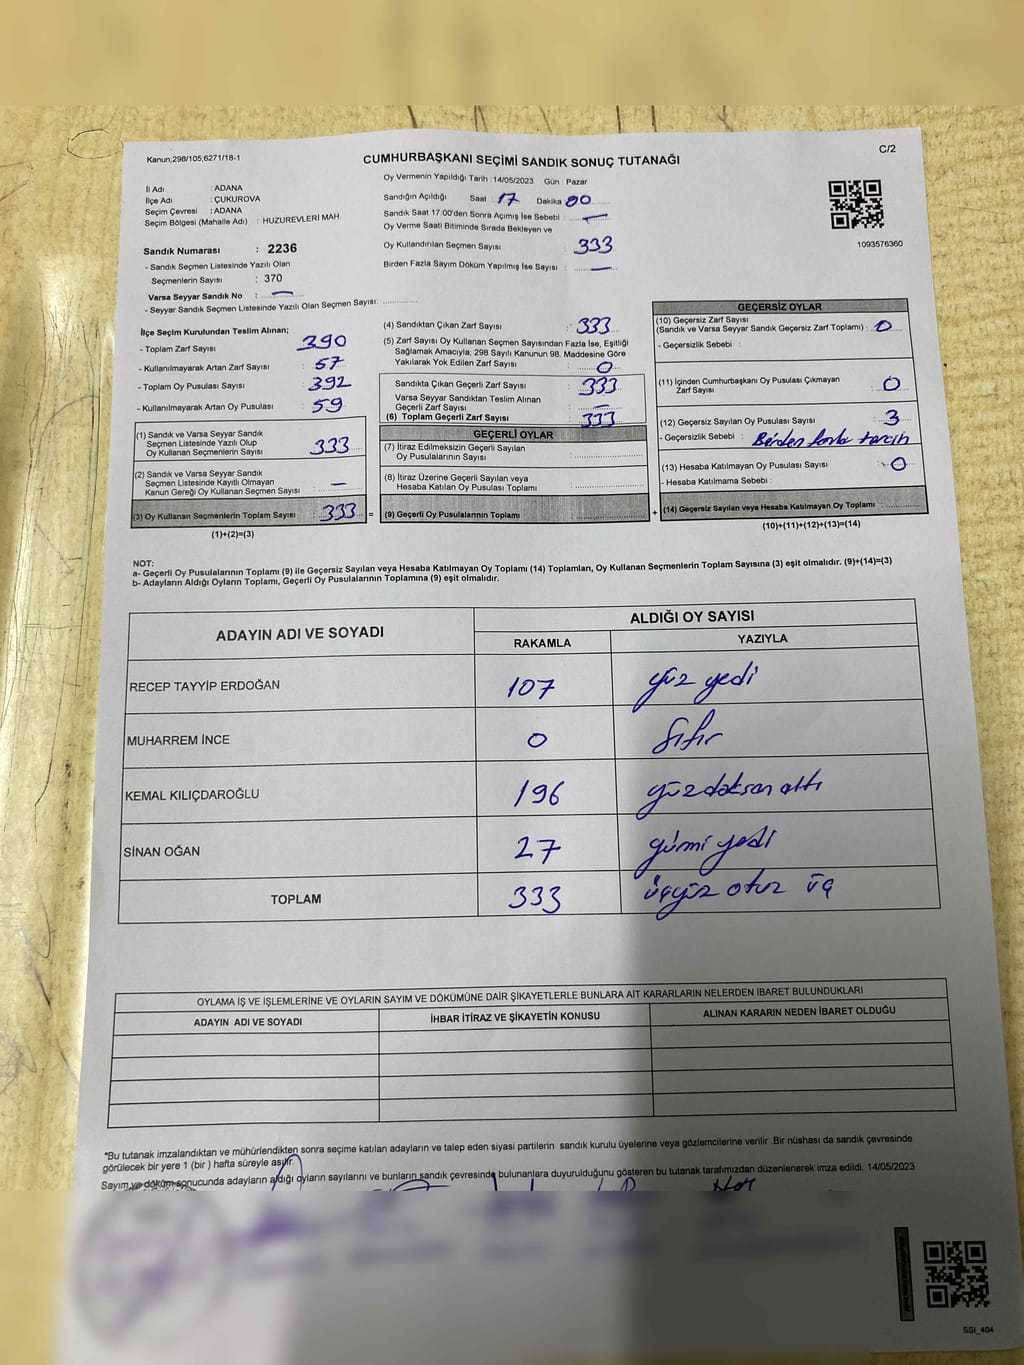 Kanun;298/105,6271/18-1
CUMHURBAŞKANI SEÇİMİ SANDIK SONUÇ TUTANAĞI
C/2
İl Adı : ADANA
İlçe Adı : ÇUKUROVA
Seçim Çevresi : ADANA
Seçim Bölgesi (Mahalle Adı) : HUZUREVLERİ MAH.
Oy Vermenin Yapıldığı Tarih :14/05/2023 Gün : Pazar
Sandığın Açıldığı Saat : 17 Dakika 00
Sandık Saat 17:00'den Sonra Açımış İse Sebebi : —
Oy Verme Saati Bitiminde Sırada Bekleyen ve
Oy Kullandırılan Seçmen Sayısı : 333
Birden Fazla Sayım Döküm Yapılmış İse Sayısı : —
1093576360
Sandık Numarası : 2236
- Sandık Seçmen Listesinde Yazılı Olan
Seçmenlerin Sayısı : 370
Varsa Seyyar Sandık No : —
- Seyyar Sandık Seçmen Listesinde Yazılı Olan Seçmen Sayısı:
İlçe Seçim Kurulundan Teslim Alınan;
- Toplam Zarf Sayısı : 390
- Kullanılmayarak Artan Zarf Sayısı : 57
- Toplam Oy Pusulası Sayısı : 392
- Kullanılmayarak Artan Oy Pusulası : 59
(1) Sandık ve Varsa Seyyar Sandık
Seçmen Listesinde Yazılı Olup
Oy Kullanan Seçmenlerin Sayısı : 333
(2) Sandık ve Varsa Seyyar Sandık
Seçmen Listesinde Kayıtlı Olmayan
Kanun Gereği Oy Kullanan Seçmen Sayısı : —
(3) Oy Kullanan Seçmenlerin Toplam Sayısı : 333 =
(1)+(2)=(3)
(4) Sandıktan Çıkan Zarf Sayısı : 333
(5) Zarf Sayısı Oy Kullanan Seçmen Sayısından Fazla İse, Eşitliği
Sağlamak Amacıyla; 298 Sayılı Kanunun 98. Maddesine Göre
Yakılarak Yok Edilen Zarf Sayısı : 0
Sandıkta Çıkan Geçerli Zarf Sayısı : 333
Varsa Seyyar Sandıktan Teslim Alınan
Geçerli Zarf Sayısı : —
(6) Toplam Geçerli Zarf Sayısı : 333
GEÇERLİ OYLAR
(7) İtiraz Edilmeksizin Geçerli Sayılan
Oy Pusulalarının Sayısı :
(8) İtiraz Üzerine Geçerli Sayılan veya
Hesaba Katılan Oy Pusulası Toplamı :
(9) Geçerli Oy Pusulalarının Toplamı : +
GEÇERSİZ OYLAR
(10) Geçersiz Zarf Sayısı
(Sandık ve Varsa Seyyar Sandık Geçersiz Zarf Toplamı) : 0
- Geçersizlik Sebebi :
(11) İçinden Cumhurbaşkanı Oy Pusulası Çıkmayan
Zarf Sayısı : 0
(12) Geçersiz Sayılan Oy Pusulası Sayısı : 3
- Geçersizlik Sebebi : Birden fazla tercih
(13) Hesaba Katılmayan Oy Pusulası Sayısı : 0
- Hesaba Katılmama Sebebi :
(14) Geçersiz Sayılan veya Hesaba Katılmayan Oy Toplamı :
(10)+(11)+(12)+(13)=(14)
NOT:
a- Geçerli Oy Pusulalarının Toplamı (9) ile Geçersiz Sayılan veya Hesaba Katılmayan Oy Toplamı (14) Toplamları, Oy Kullanan Seçmenlerin Toplam Sayısına (3) eşit olmalıdır. (9)+(14)=(3)
b- Adayların Aldığı Oyların Toplamı, Geçerli Oy Pusulalarının Toplamına (9) eşit olmalıdır.
ADAYIN ADI VE SOYADI
ALDIĞI OY SAYISI
RAKAMLA YAZIYLA
RECEP TAYYİP ERDOĞAN 107 yüz yedi
MUHARREM İNCE 0 Sıfır
KEMAL KILIÇDAROĞLU 196 yüzdoksan altı
SİNAN OĞAN 27 yirmi yedi
TOPLAM 333 üçyüz otuz üç
OYLAMA İŞ VE İŞLEMLERİNE VE OYLARIN SAYIM VE DÖKÜMÜNE DAİR ŞİKAYETLERLE BUNLARA AİT KARARLARIN NELERDEN İBARET BULUNDUKLARI
ADAYIN ADI VE SOYADI İHBAR İTİRAZ VE ŞİKAYETİN KONUSU ALINAN KARARIN NEDEN İBARET OLDUĞU
*Bu tutanak imzalandıktan ve mühürlendikten sonra seçime katılan adayların ve talep eden siyasi partilerin sandık kurulu üyelerine veya gözlemcilerine verilir .Bir nüshası da sandık çevresinde
görülecek bir yere 1 (bir ) hafta süreyle asılır.
Sayım ve döküm sonucunda adayların aldığı oyların sayılarını ve bunların sandık çevresinde bulunanlara duyurulduğunu gösteren bu tutanak tarafımızdan düzenlenerek imza edildi. 14/05/2023
SSİ_404